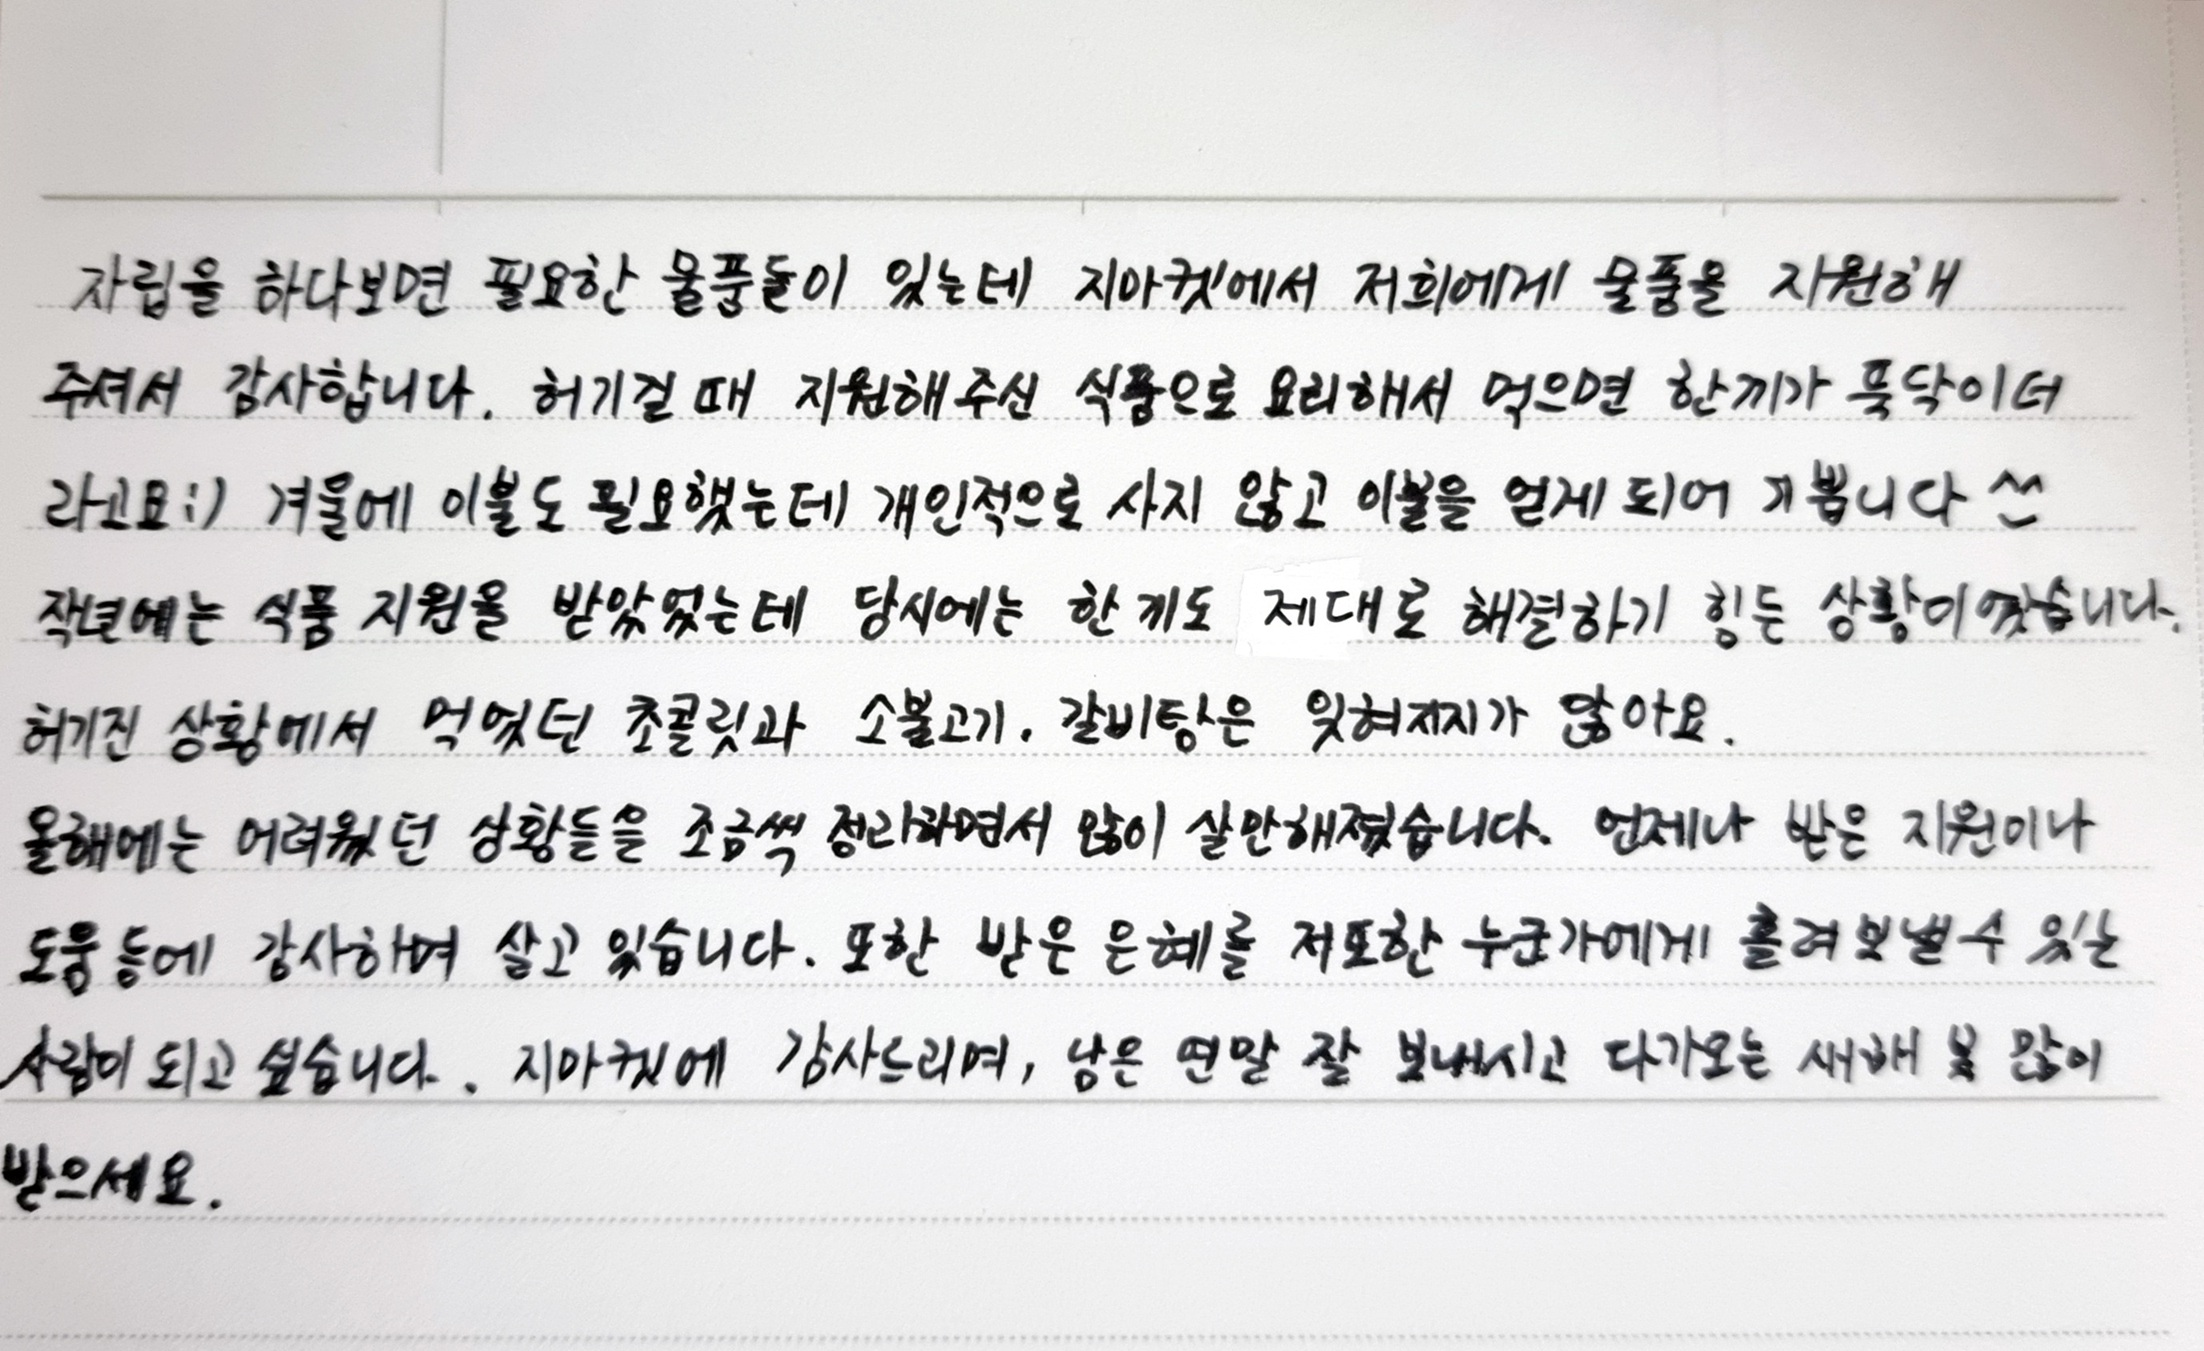 자립을 하다보면 필요한 물품들이 있는데 지마켓에서 저희에게 물품을 지원해
주셔서 감사합니다. 허기질 때 지원해주신 식품으로 요리해서 먹으면 한끼가 뚝딱이더
라고요:) 겨울에 이불도 필요했는데 개인적으로 사지 않고 이불을 얻게 되어 기쁩니다 ^^
작년에는 식품 지원을 받았었는데 당시에는 한 끼도 제대로 해결하기 힘든 상황이였습니다.
허기진 상황에서 먹었던 초콜릿과 소불고기. 갈비탕은 잊혀지지가 않아요.
올해에는 어려웠던 상황들을 조금씩 정리하면서 많이 살만해졌습니다. 언제나 받은 지원이나
도움 등에 감사하며 살고 있습니다. 또한 받은 은혜를 저또한 누군가에게 흘려보낼 수 있는
사람이 되고 싶습니다. 지마켓에 감사드리며, 남은 연말 잘 보내시고 다가오는 새해 복 많이
받으세요.